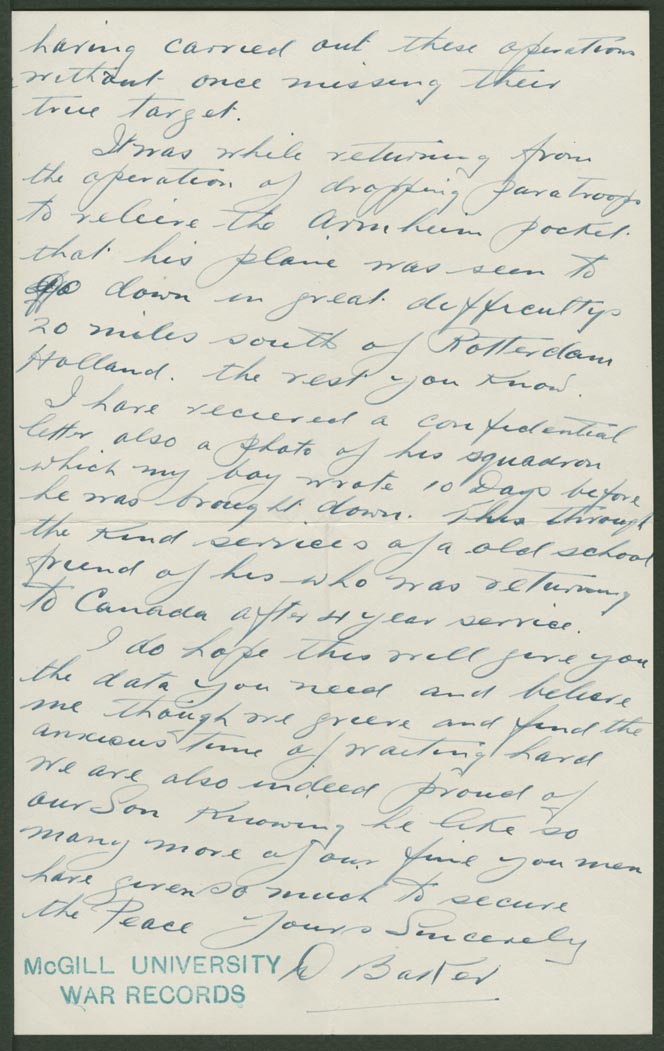 having carried out these operations
without once missing their
true target.
It was while returning from
the operation of dropping paratroops
to releive the Arnheim pocket
that his plane was seen to
go down in great difficultys
20 miles south of Rotterdam
Holland. the rest you know.
I have recieved a confidential
letter also a photo of his squadron
which my boy wrote 10 Days before
he was brought down. This through
the kind services of a old school
friend of his who was returning
to Canada after 4 year service.
I do hope this will give you
the data you need and believe
me though we grieve and find the
anxious time of waiting hard
we are also indeed proud of
our Son Knowing he like so
many more of our fine you men
have given so much to secure
the Peace Yours Sincerely
Barker
McGILL UNIVERSITY
WAR RECORDS